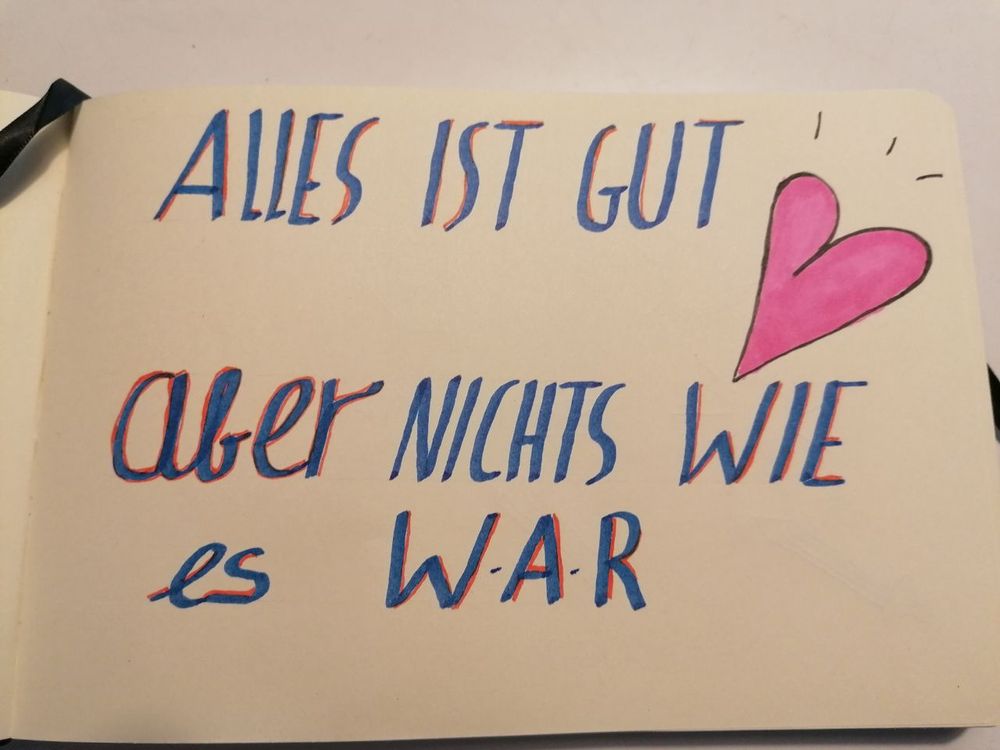 ALLES IST GUT
aber NICHTS WIE
es W·A·R